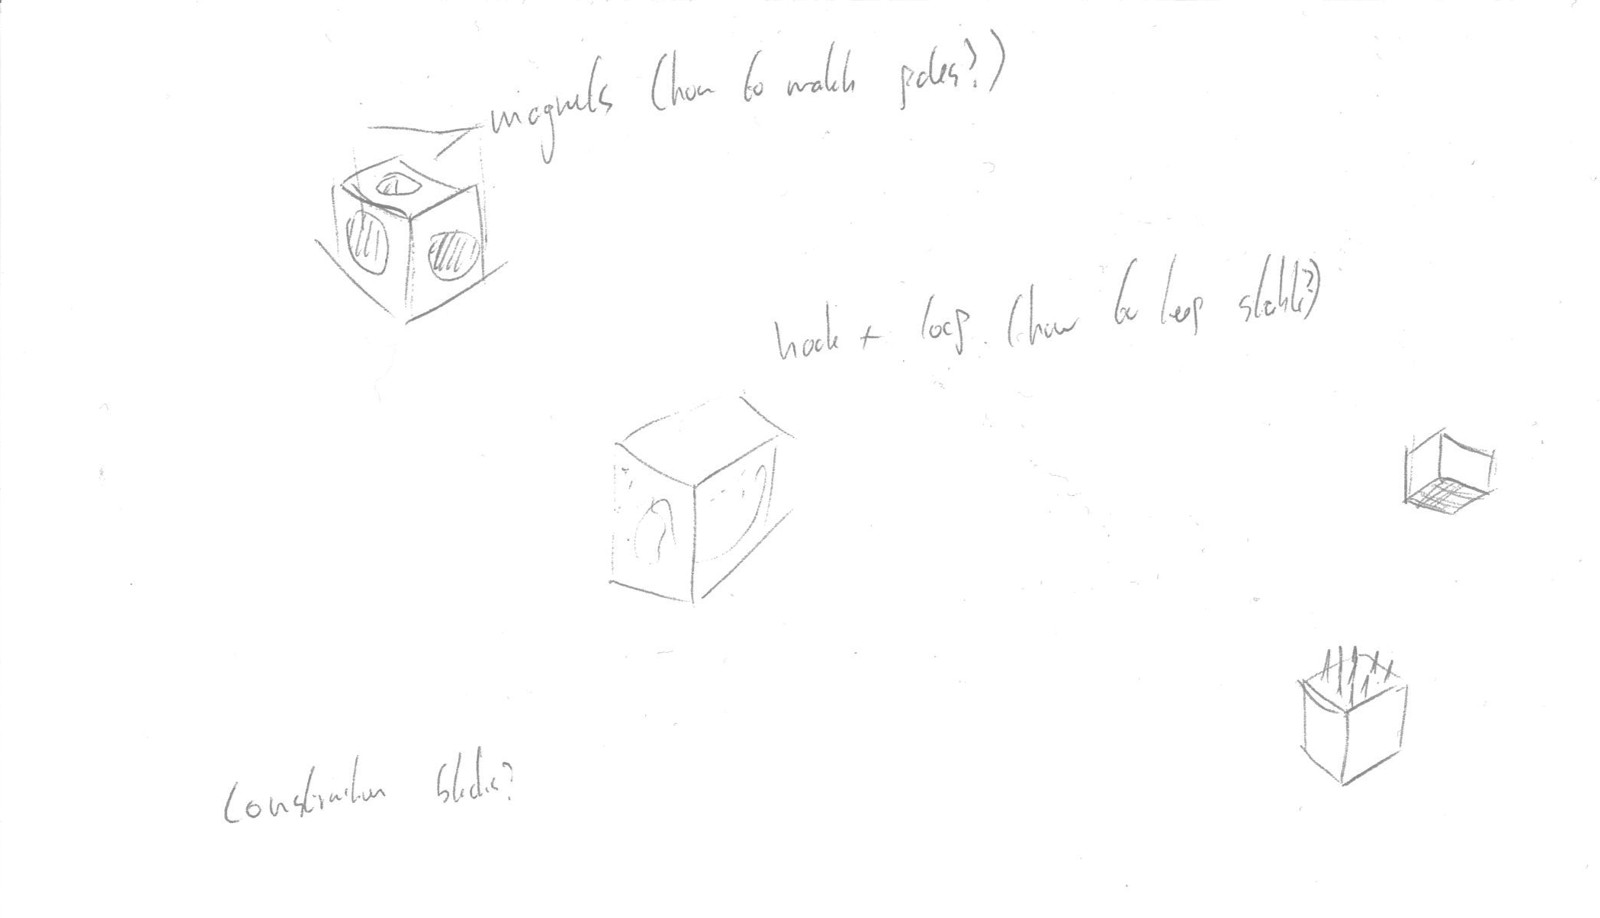 magnets (how to match poles?)
hook + loop. (how to keep stable?)
Construction blocks?